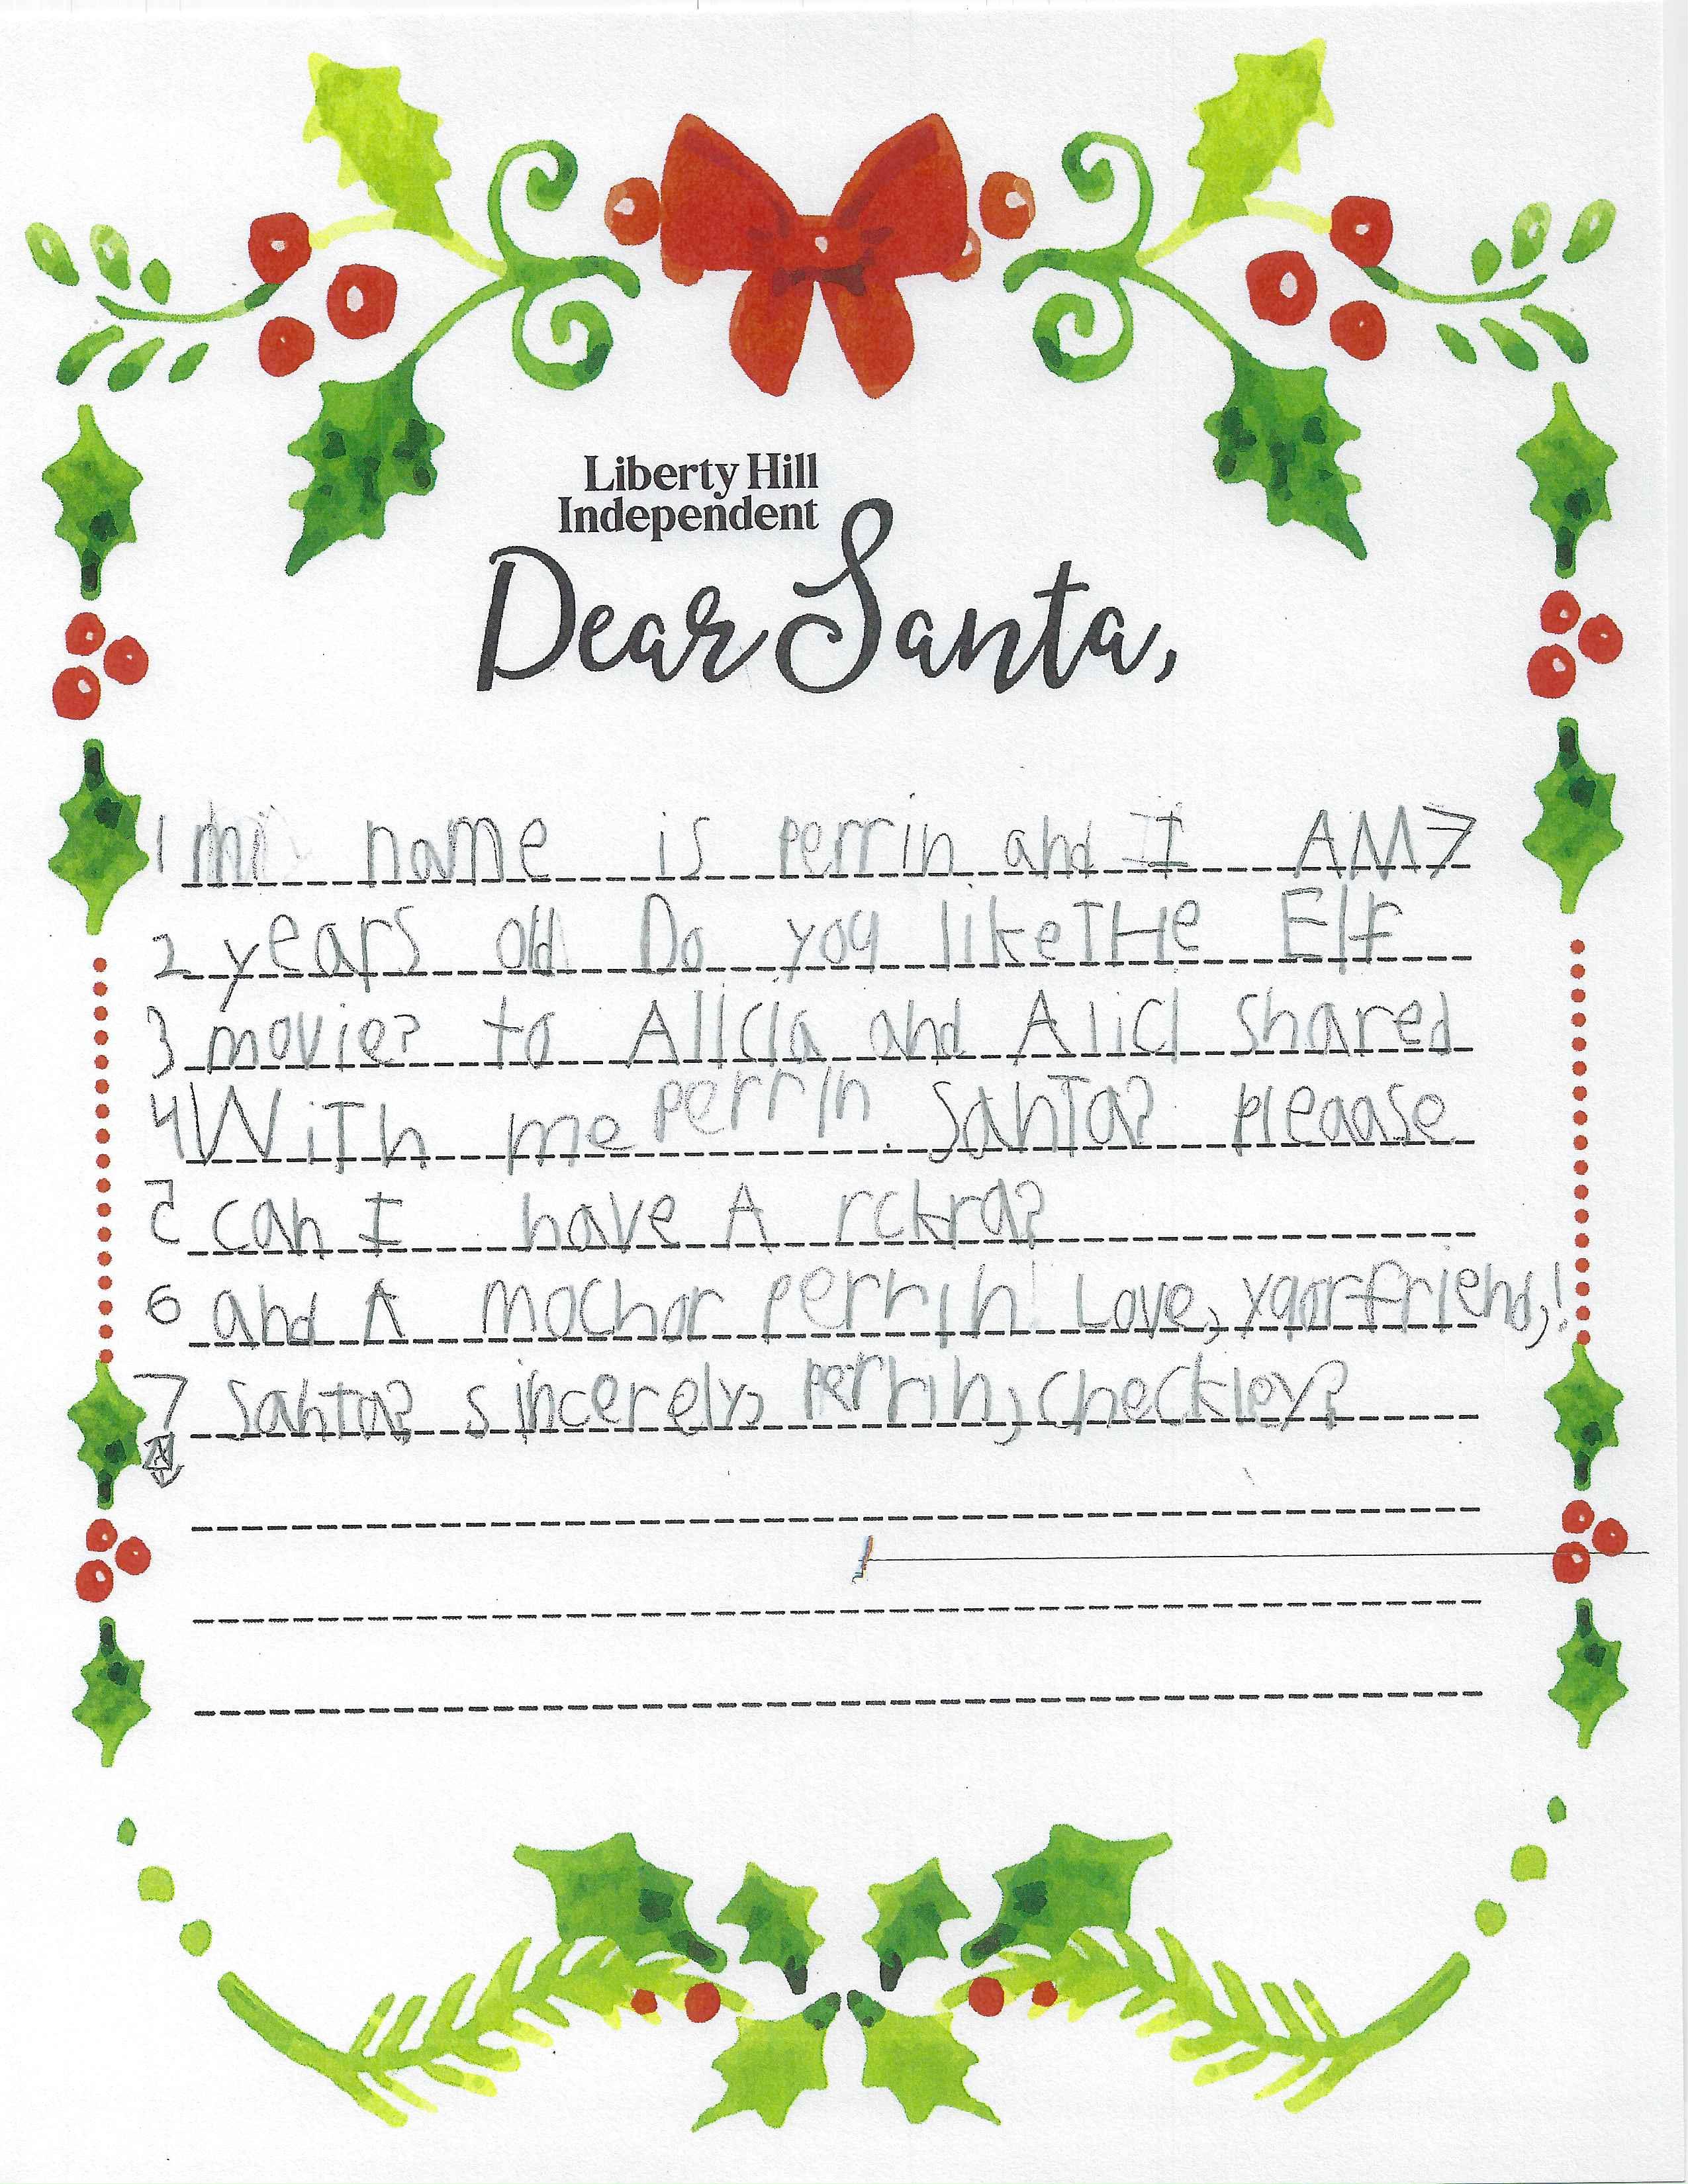 Liberty Hill
Independent
Dear Santa,
1 mi name is perrin and I AM 7
2 years old Do you like THe Elf
3 movie? to Alicia and Alicl shared
4 WiTh me perrin. SanTa? pleaase
5 can I have A rckrd?
6 and A mochor perrin! Love, yourfriend,!
7 Santa? sincerely, Perrin, checkley?